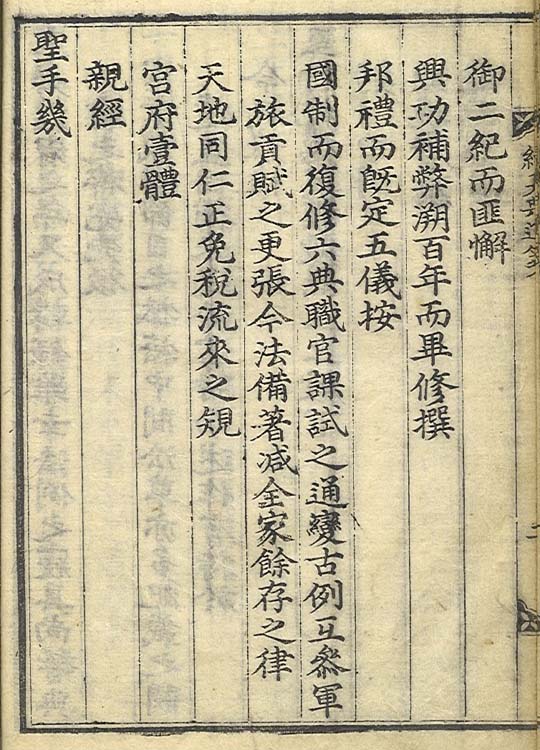 御二紀而匪懈
興功補弊溯百年而畢修撰
邦禮而旣定五儀按
國制而復修六典職官課試之通變古例互參軍
旅貢賦之更張今法備著减全家餘存之律
天地同仁正免稅流來之䂓
宮府壹體
親經
聖手幾